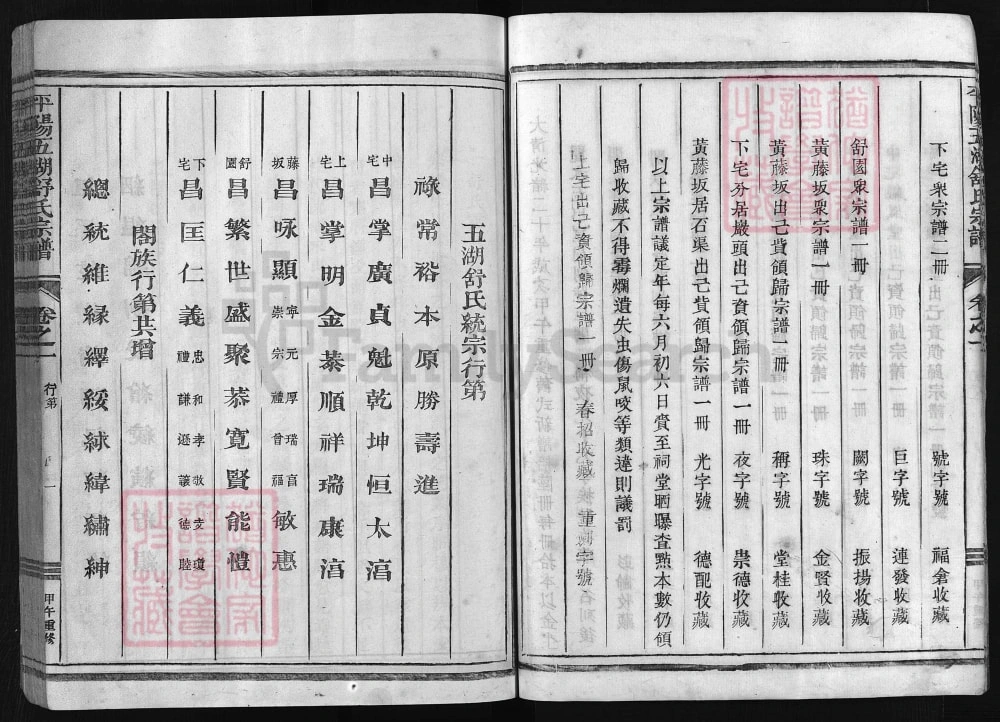 平陽五湖舒氏宗譜
卷之一
下宅衆宗譜二冊 號字號 福倉收藏
巨字號 連發收藏
舒園衆宗譜一冊 闕字號 振揚收藏
黃藤坂衆宗譜一冊 珠字號 金賢收藏
黃藤坂出己貲領歸宗譜一冊 稱字號 堂桂收藏
下宅分居嚴頭出己貲領歸宗譜一冊 夜字號 崇德收藏
黃藤坂居石渠出己貲領歸宗譜一冊 光字號 德配收藏
以上宗譜議定年每六月初六日賫至祠堂晒曝查㸃本數仍領
歸收藏不得霉爛遺失虫傷鼠咬等類違則議罰
上宅出己資領歸宗譜一冊 春招收藏 重字號
五湖舒氏統宗行第
祿常裕本原勝壽進
中宅 昌掌廣貞魁乾坤恒太滈
上宅 昌掌明金泰順祥瑞康滈
藤坂 昌咏顯 寧元厚瑞 崇宗禮曾福 敏惠
舒園 昌繁世盛聚恭寬賢能禮
下宅 昌匡仁義 忠和孝敬文瓊 禮謙遜讓德睦
閤族行第共增
總統維緑繹綏絿緯繡紳
平陽五湖舒氏宗譜
卷之一
行第
一
甲午重修